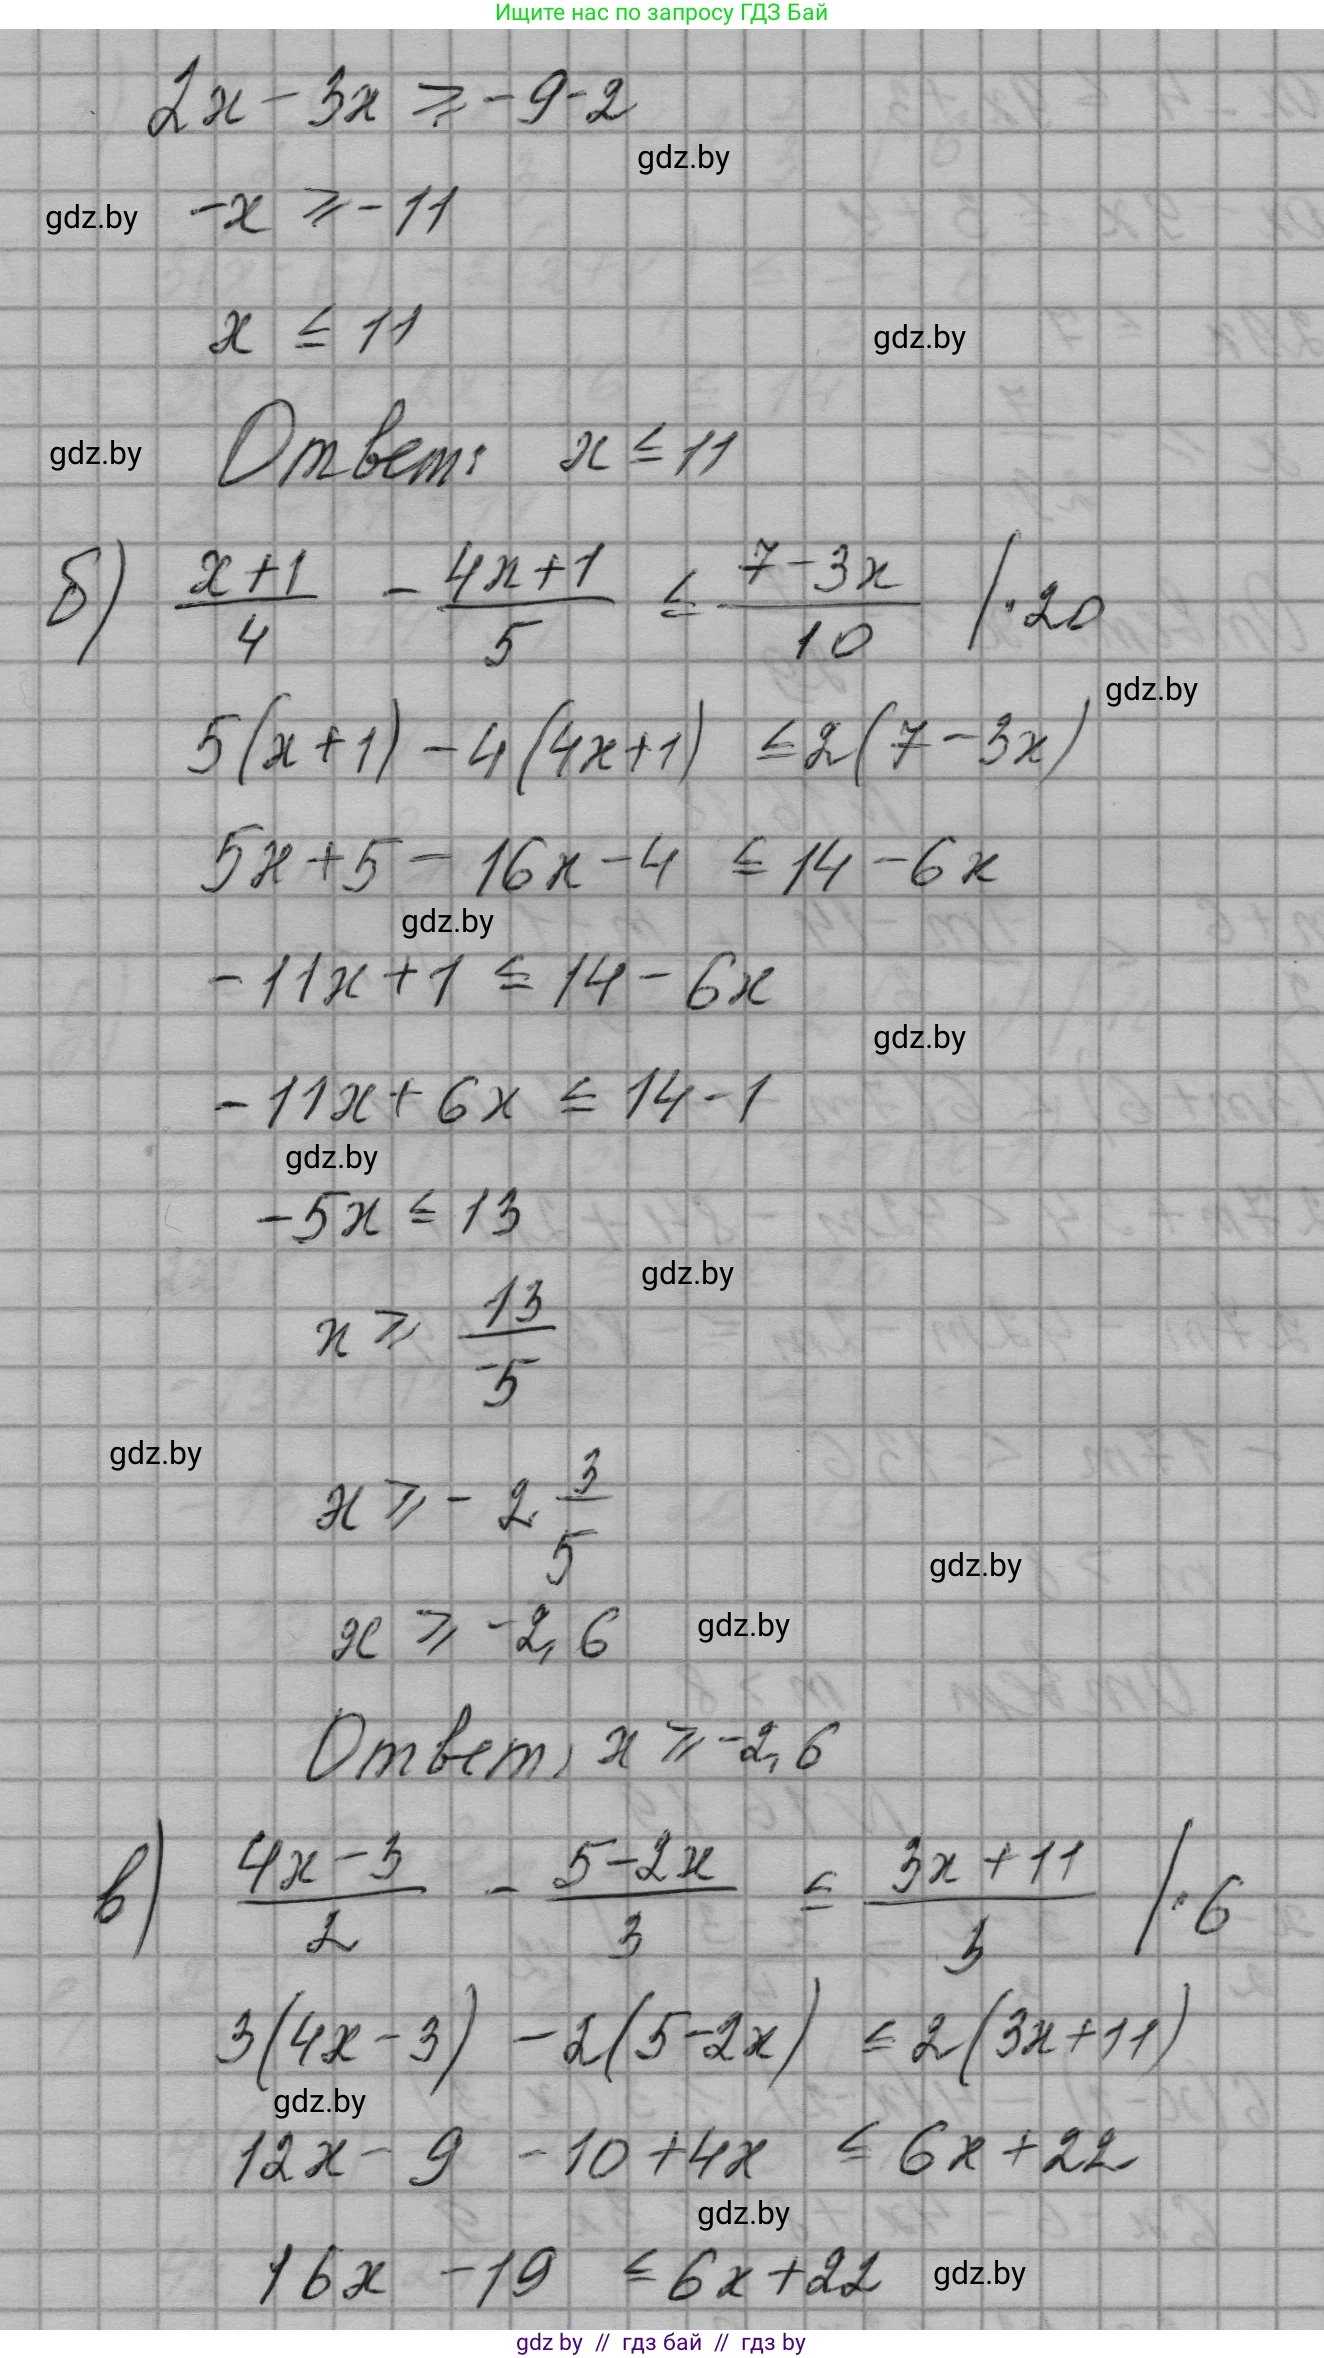 Ищите нас по запросу ГДЗ Бай
2x - 3x ⩾ -9-2
gdz.by
gdz.by
-x ⩾ -11
x ≤ 11
gdz.by
gdz.by
Ответ: x ≤ 11
б) (x+1)/4 - (4x+1)/5 ≤ (7-3x)/10 | ·20
gdz.by
5(x+1) - 4(4x+1) ≤ 2(7-3x)
5x+5 - 16x - 4 ≤ 14 - 6x
gdz.by
-11x + 1 ≤ 14 - 6x
gdz.by
-11x + 6x ≤ 14 - 1
gdz.by
-5x ≤ 13
gdz.by
x ⩾ 13/-5
gdz.by
x ⩾ -2 3/5
gdz.by
x ⩾ -2,6
gdz.by
Ответ: x ⩾ -2,6
в) (4x-3)/2 - (5-2x)/3 ≤ (3x+11)/3 | ·6
3(4x-3) - 2(5-2x) ≤ 2(3x+11)
gdz.by
12x - 9 - 10 + 4x ≤ 6x + 22
gdz.by
16x - 19 ≤ 6x + 22
gdz.by
gdz by // гдз бай // гдз by